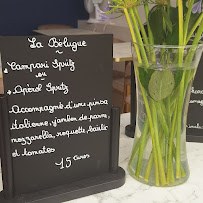 La Bélugue
~
- Campari Spritz
ou
- Apérol Spritz
Accompagné d'une pinsa
italienne, jambon de parme,
mozzarella, roquette, basilic
et tomates
15 euros